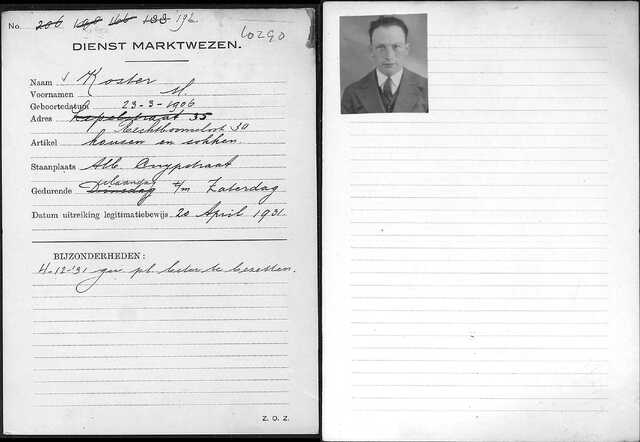 No. 206 198 166 188 196
60290
DIENST MARKTWEZEN.
Naam Koster
Voornamen M.
Geboortedatum 23-3-1906
Adres Lepelstraat 35
Rechtboomsloot 30
Artikel kousen en sokken
Staanplaats Alb. Cuypstraat
Maandag
Gedurende Dinsdag t/m Zaterdag
Datum uitreiking legitimatiebewijs 20 April 1931.
BIJZONDERHEDEN:
4-12-'31 gew pl beter te bezetten.
Z. O. Z.